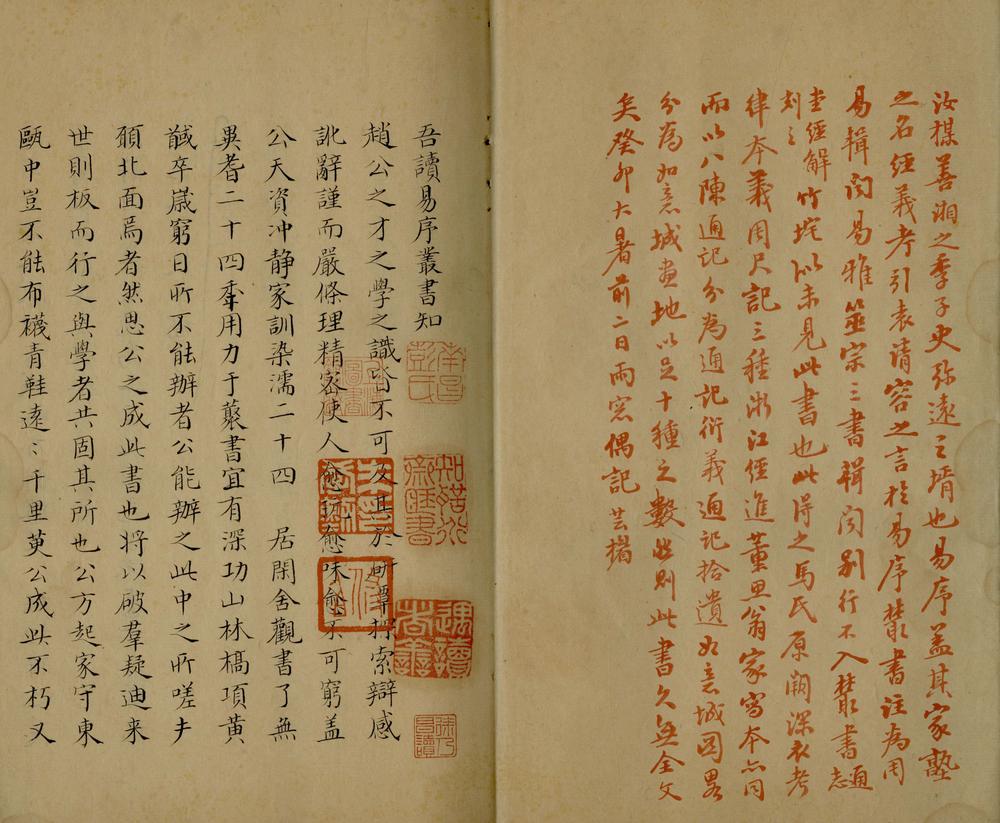 汝楳善湘之季子史弥遠之壻也易序盖其家塾
之名經義考引袁清容之言於易序叢書注為周
易輯聞易雅筮宗三書輯聞别行不入叢書通志
堂經解刻之竹垞似未見此書也此得之馬氏原闕深衣考
律本義周尺記三種浙江經進董思翁家写本亦同
而以八陳通記分為通記衍義通記拾遺如意城圖畧
分為如意城畫地以足十種之數然則此書久無全文
矣癸卯大暑前二日雨窓偶記芸楣
吾讀易序叢書知
趙公之才之學之識皆不可及其於研覃探索辯感
訛辭謹而嚴條理精密使人愈玩愈味愈不可窮盖
公天資冲静家訓染濡二十四 居閑舍觀書了無
異耆二十四秊用力于叢書宜有深功山林槁項黃
馘卒嵗窮日所不能辦者公能辦之此中之所嗟夫
願北面焉者然思公之成此書也将以破羣疑迪来
世則板而行之與學者共固其所也公方起家守東
甌中豈不能布襪青鞋遠〻千里萸公成此不朽又
南昌彭氏
知聖道齋藏書
遇讀者善